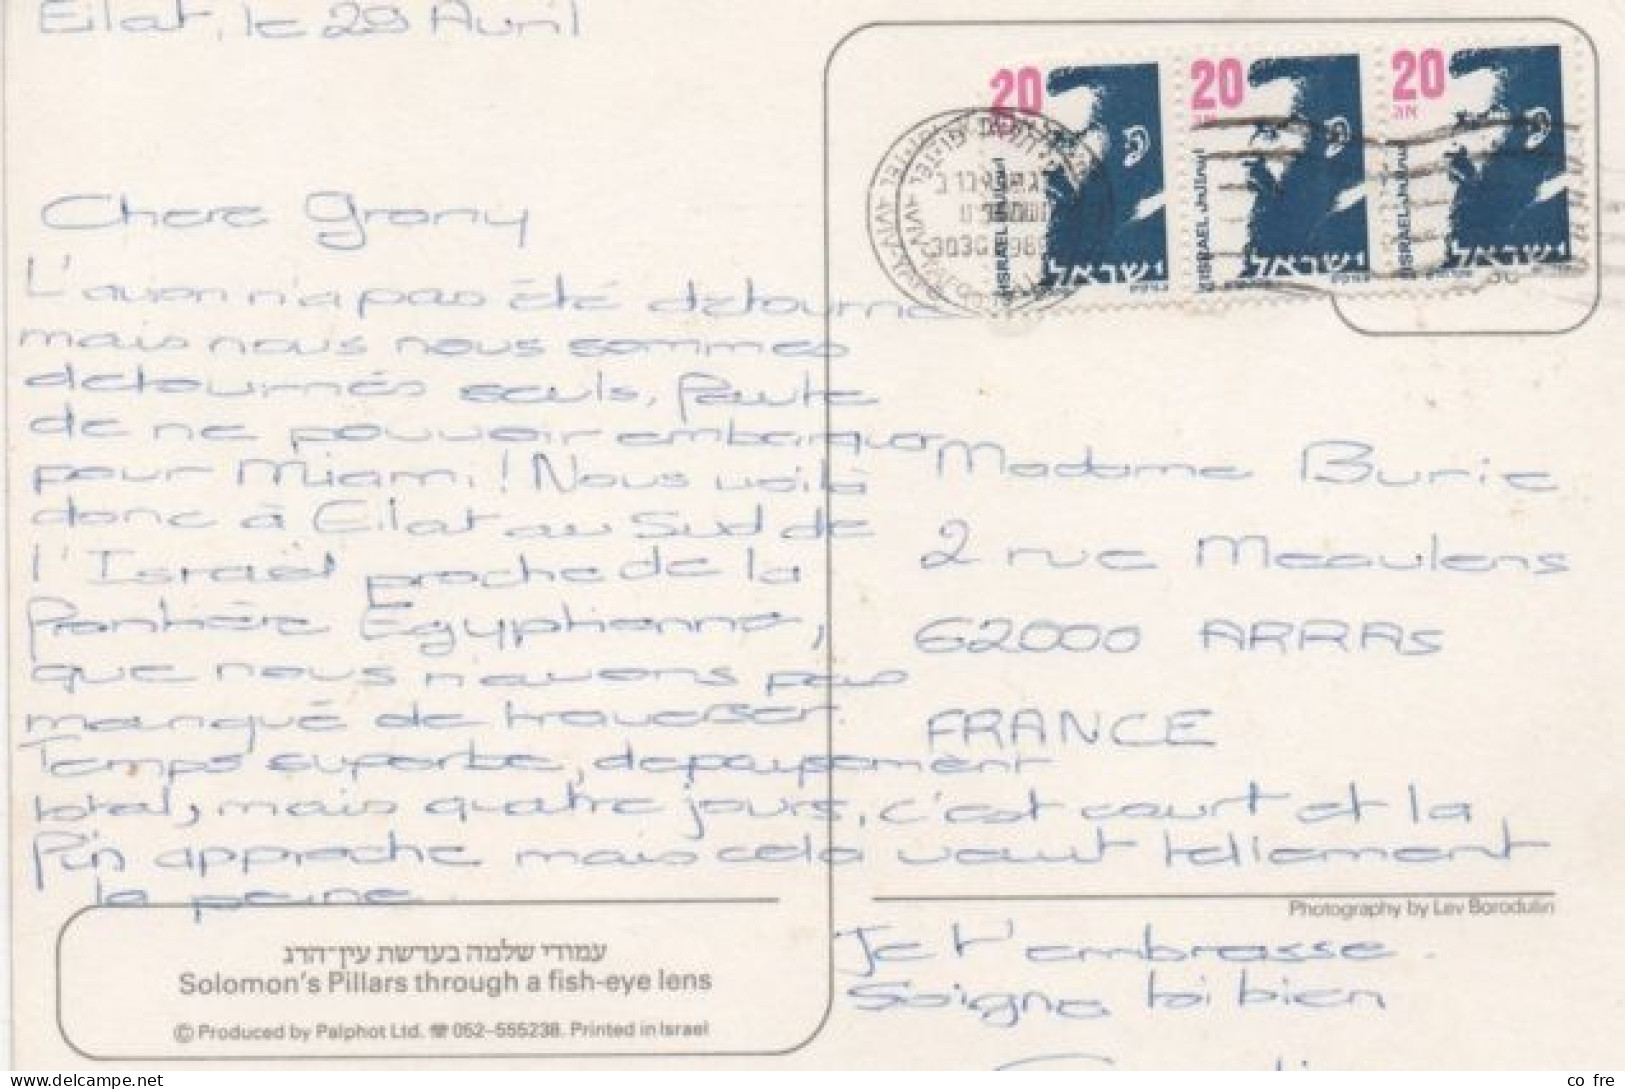 Eilat, le 29 Avril
Chere grany
L'avion n'a pas été detourné
mais nous nous sommes
detournés seuls, faute
de ne pouvoir embarquer
pour Miami! Nous voilà
donc à Eilat au Sud de
l'Israël proche de la
Frontière Egyptienne,
que nous n'avons pas
manqué de traverser.
Temps superbe, depaysement
total, mais quatre jours, c'est court et la
Fin approche mais cela vaut tellement
la peine.
Je t'embrasse.
Soigne toi bien
20
20
20
אג
אג
ISRAEL
ISRAEL
ISRAEL
ישראל
ישראל
ישראל
Madame Burie
2 rue Meaulens
62000 ARRAS
FRANCE
Photography by Lev Borodulin
עמודי שלמה בעדשת עין־הדג
Solomon's Pillars through a fish-eye lens
© Produced by Palphot Ltd. ☎ 052-555238. Printed in Israel
co fre